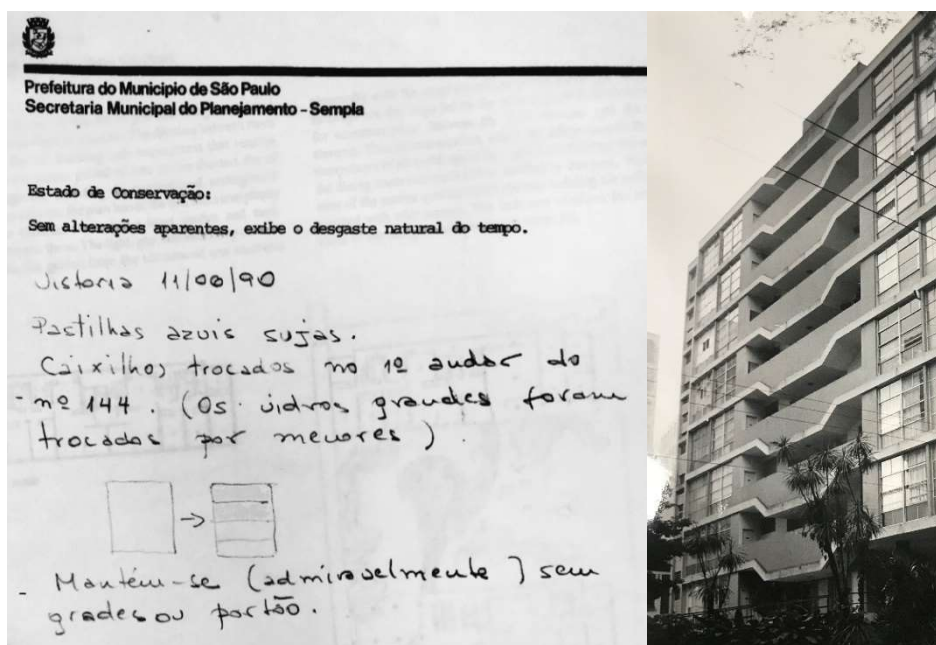 Prefeitura do Municipio de São Paulo
Secretaria Municipal do Planejamento - Sempla
Estado de Conservação:
Sem alterações aparentes, exibe o desgaste natural do tempo.
Vistoria 11/08/90
Pastilhas azuis sujas.
Caixilhos trocados no 1º andar do
- nº 144. (Os vidros grandes foram
trocados por menores).
- Mantém-se (admiravelmente) sem
grades ou portão.